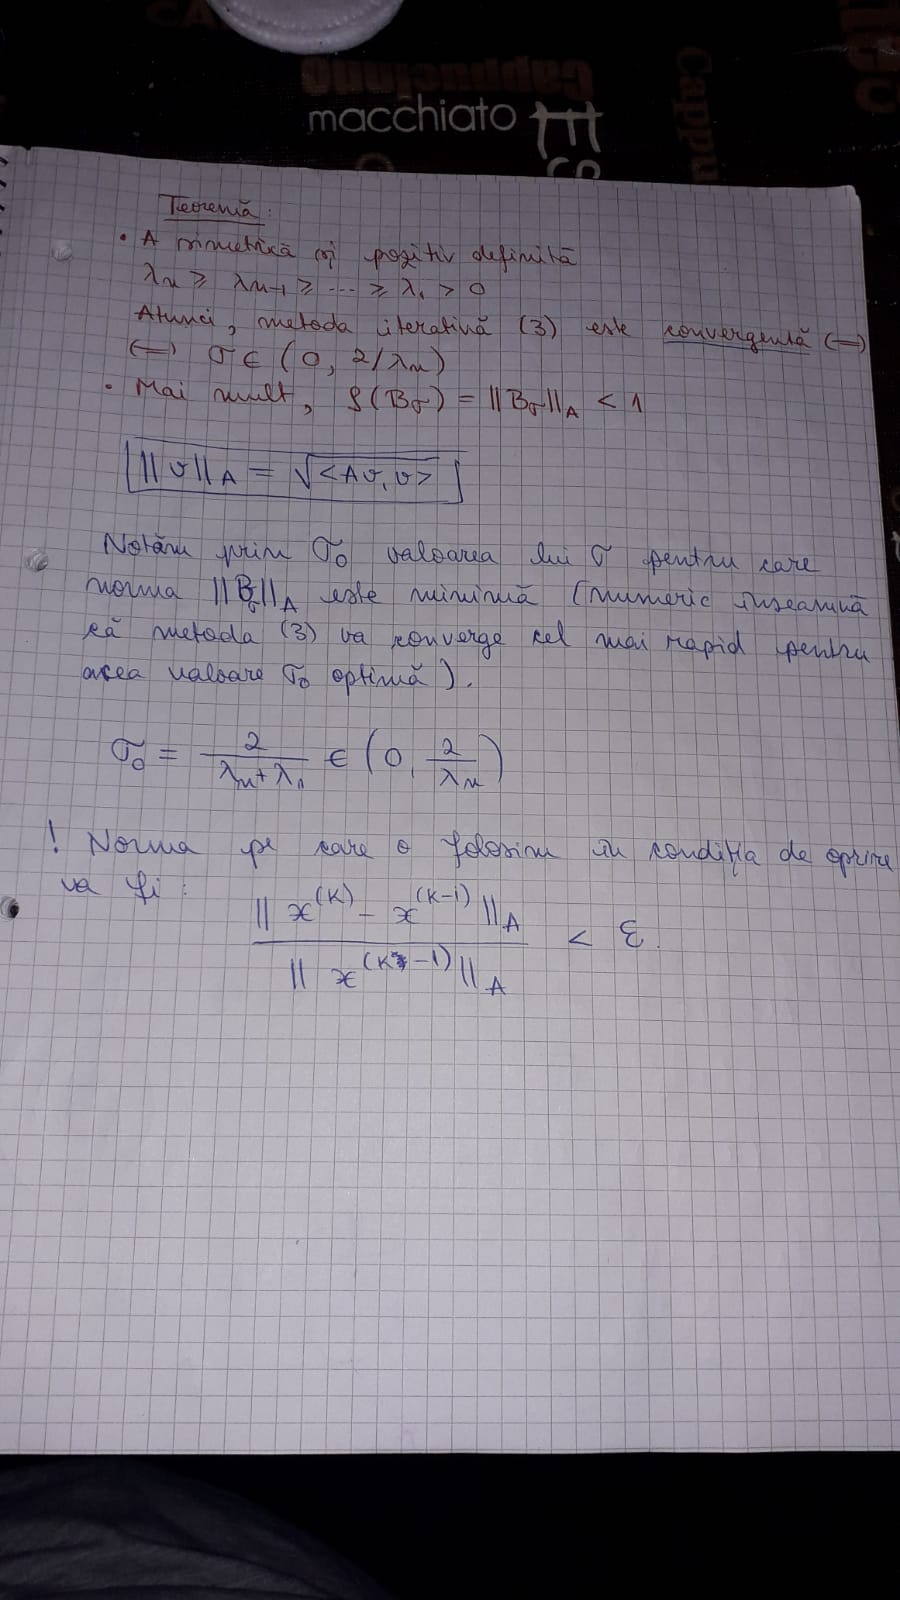 Cappuccino
macchiato
Cappu
ES
Teoremă:
• A simetrică și pozitiv definită
λn ≥ λn-1 ≥ ... ≥ λ1 > 0
Atunci, metoda iterativă (3) este convergentă (=)
(=) σ ∈ (0, 2/λn)
• Mai mult, ρ(Bσ) = ||Bσ||A < 1
||v||A = √<Av, v>
Notăm prin σ0 valoarea lui σ pentru care
norma ||Bσ||A este minimă (numeric înseamnă
că metoda (3) va converge cel mai rapid pentru
acea valoare σ0 optimă).
σ0 = 2/(λn + λ1) ∈ (0, 2/λn)
! Norma pe care o folosim în condiția de oprire
va fi:
||x^(k) - x^(k-1)||A / ||x^(k-1)||A < ε.